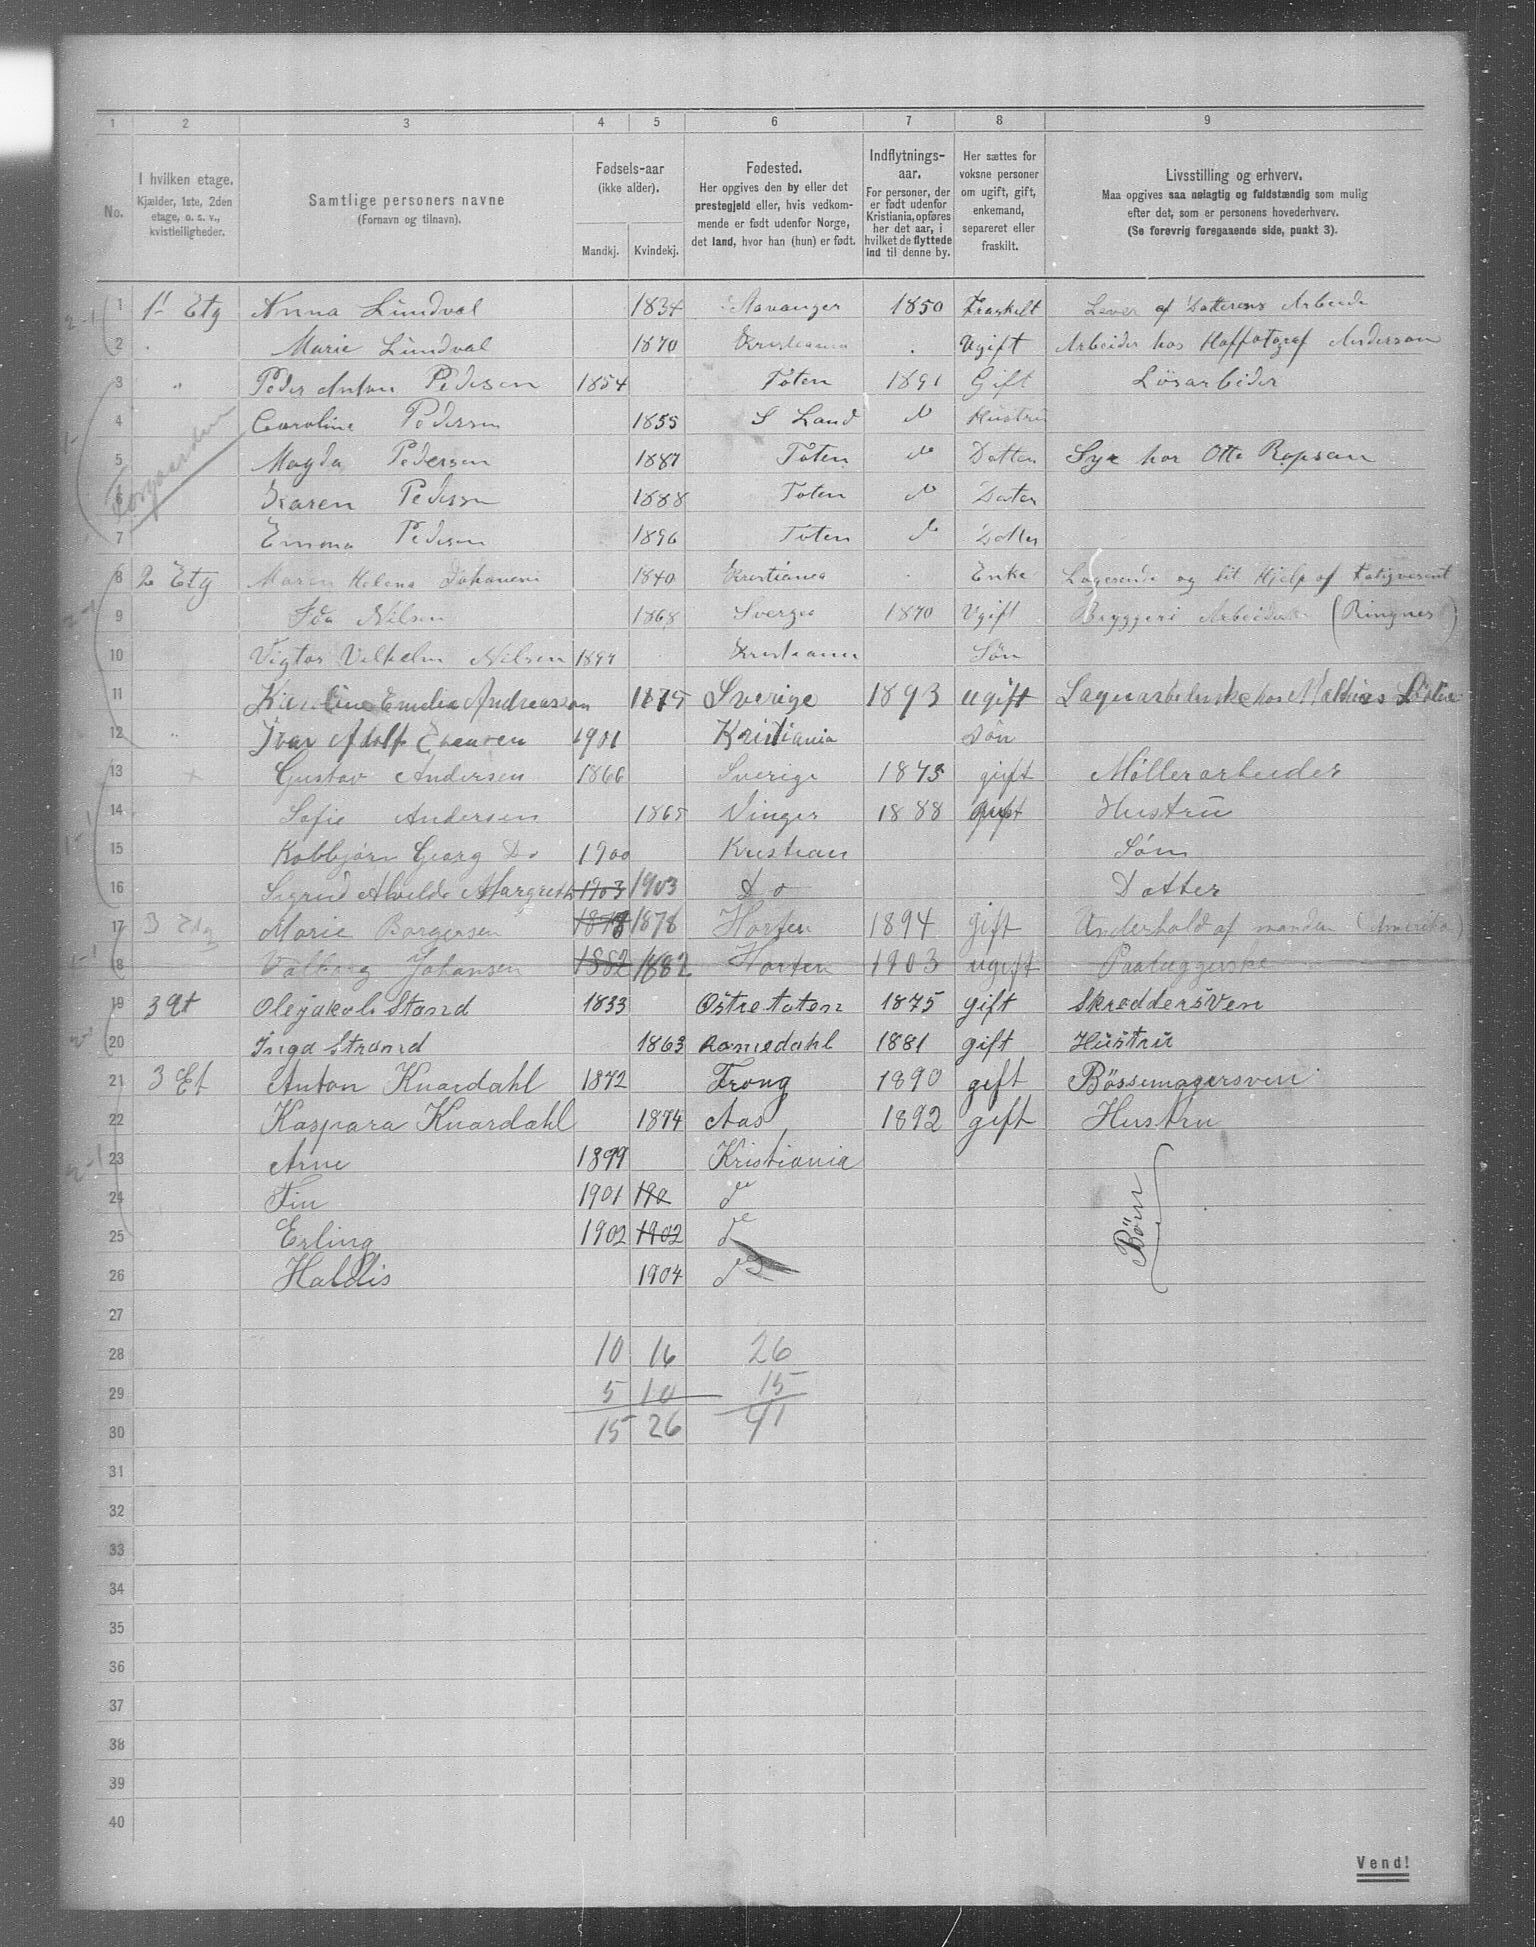 1 2 3 4 5 6 7 8 9
No.
I hvilken etage.
Kjælder, 1ste, 2den
etage, o. s. v.,
kvistleiligheder.
Samtlige personers navne
(Fornavn og tilnavn).
Fødsels-aar
(ikke alder).
Mandkj. Kvindekj.
Fødested.
Her opgives den by eller det
prestegjeld eller, hvis vedkom-
mende er født udenfor Norge,
det land, hvor han (hun) er født.
Indflytnings-
aar.
For personer, der
er født udenfor
Kristiania, opføres
her det aar, i
hvilket de flyttede
ind til denne by.
Her sættes for
voksne personer
om ugift, gift,
enkemand,
separeret eller
fraskilt.
Livsstilling og erhverv.
Maa opgives saa nøiagtig og fuldstændig som mulig
efter det, som er personens hovederhverv.
(Se forøvrig foregaaende side, punkt 3).
1 1 Etg Anna Lundval 1834 Stavanger 1850 Fraskelt Lever af Datterens Arbeide
2 Marie Lundval 1870 Kristiania Ugift Arbeider hos Hoffotograf Anderson
3 " Peder Anton Pedersen 1854 Toten 1891 Gift Lösarbeider
4 Caroline Pedersen 1855 S Land do Hustru
5 Magda Pedersen 1887 Toten do Datter Sye hor Otto
6 Karen Pedersen 1888 Toten do Datter
7 Emma Pedersen 1896 Toten do Datter
Forgaarden
8 2 Etg Maren Helena 1840 Kristiania Enke og lit Hjelp af
9 Ida Nilsen 1868 Sverge 1870 Ugift Bryggeri (Ringnes)
10 Vigtor Vilhelm Nilsen 1897 Kristiania Sön
11 Emelia Andreasson 1875 Sverige 1893 ugift hos Mathias
12 " Ivar Adolf 1901 Kristiania Sön
13 Gustav Andersen 1866 Sverige 1875 gift Møllerarbeider
14 Sofie Andersen 1865 Vinger 1888 gift Hustru
15 Georg Do 1900 Kristian Søn
16 Sigrid Alvilde Margrethe 1903 1903 do Datter
17 3 Etg Marie Borgersen 1878 1878 Horten 1894 gift Underhold af manden (Amerika)
18 Valborg Johansen 1882 1882 Horten 1903 ugift
19 3 et Olejakob Strand 1833 Östre toten 1875 gift Skreddersven
20 Inga Strand 1863 Romedahl 1881 gift Hustru
21 3 Et Anton Knardahl 1872 Frong 1890 gift Bössemagersven
22 Kaspara Knardahl 1874 Aas 1892 gift Hustru
23 Arne 1899 Kristiania
24 Fin 1901 190 do
25 Erling 1902 1902 do
26 Haldis 1904 do
Börn
27
28 10 16 26
29 5 10 15
30 15 26 41
31
32
33
34
35
36
37
38
39
40
Vend!